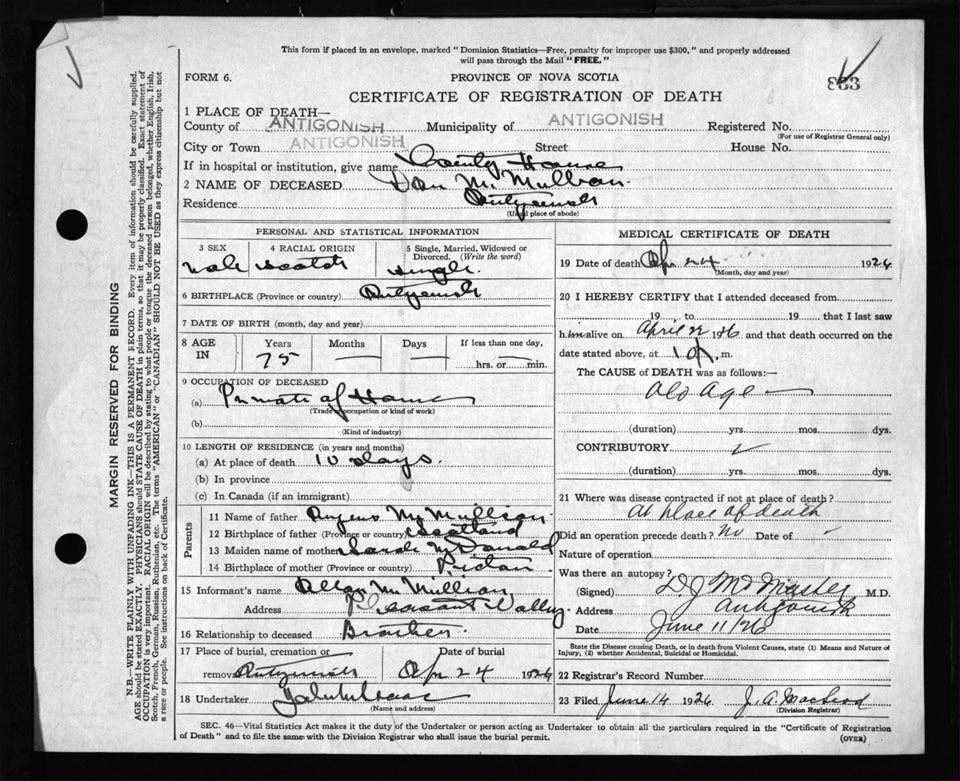 This form if placed in an envelope, marked "Dominion Statistics—Free, penalty for improper use $300," and properly addressed
will pass through the Mail "FREE."
FORM 6.
PROVINCE OF NOVA SCOTIA
CERTIFICATE OF REGISTRATION OF DEATH
1 PLACE OF DEATH—
County of ANTIGONISH Municipality of ANTIGONISH Registered No.
(For use of Registrar General only)
City or Town ANTIGONISH Street House No.
If in hospital or institution, give name County Home
2 NAME OF DECEASED Dan McMillan
Residence Antigonish
(Usual place of abode)
PERSONAL AND STATISTICAL INFORMATION
3 SEX 4 RACIAL ORIGIN 5 Single, Married, Widowed or
Divorced. (Write the word)
Male Scotch Single
6 BIRTHPLACE (Province or country) Antigonish
7 DATE OF BIRTH (month, day and year)
8 AGE IN Years Months Days If less than one day,
75 — — hrs. or min.
9 OCCUPATION OF DECEASED
(a) Inmate of Home
(Trade, occupation or kind of work)
(b)
(Kind of industry)
10 LENGTH OF RESIDENCE (in years and months)
(a) At place of death 10 days.
(b) In province
(c) In Canada (if an immigrant)
Parents
11 Name of father McMillan
12 Birthplace of father (Province or country) Scotland
13 Maiden name of mother Sarah McDonald
14 Birthplace of mother (Province or country) Pictou
15 Informant's name Allan McMillan
Address Pleasant Valley
16 Relationship to deceased Brother
17 Place of burial, cremation or Date of burial
removal Antigonish Apr 24 1926
18 Undertaker
(Name and address)
MEDICAL CERTIFICATE OF DEATH
19 Date of death Apr 24 1926
(Month, day and year)
20 I HEREBY CERTIFY that I attended deceased from
19 to 19 that I last saw
him alive on April 22 1926 and that death occurred on the
date stated above, at m.
The CAUSE of DEATH was as follows:—
Old Age
(duration) yrs. mos. dys.
CONTRIBUTORY
(duration) yrs. mos. dys.
21 Where was disease contracted if not at place of death?
At place of death
Did an operation precede death? No Date of
Nature of operation
Was there an autopsy?
(Signed) D J McMaster M.D.
Address Antigonish
Date June 11/26
State the Disease causing Death, or in death from Violent Causes, state (1) Means and Nature of
Injury, (2) whether Accidental, Suicidal or Homicidal.
22 Registrar's Record Number
23 Filed June 14 1926 J. A. MacLeod
(Division Registrar)
SEC. 46—Vital Statistics Act makes it the duty of the Undertaker or person acting as Undertaker to obtain all the particulars required in the "Certificate of Registration
of Death" and to file the same with the Division Registrar who shall issue the burial permit.
(OVER)
MARGIN RESERVED FOR BINDING
N.B.—WRITE PLAINLY WITH UNFADING INK—THIS IS A PERMANENT RECORD. Every item of information should be carefully supplied.
AGE should be stated EXACTLY. PHYSICIANS should STATE CAUSE OF DEATH in plain terms, so that it may be properly classified. Exact statement of
OCCUPATION is very important. RACIAL ORIGIN will be described by stating to what people or tongue the deceased person belonged, whether English, Irish,
Scotch, French, German, Russian, Ruthenian, etc. The terms "AMERICAN" or "CANADIAN" SHOULD NOT BE USED as they express citizenship but not
a race or people. See instructions on back of Certificate.